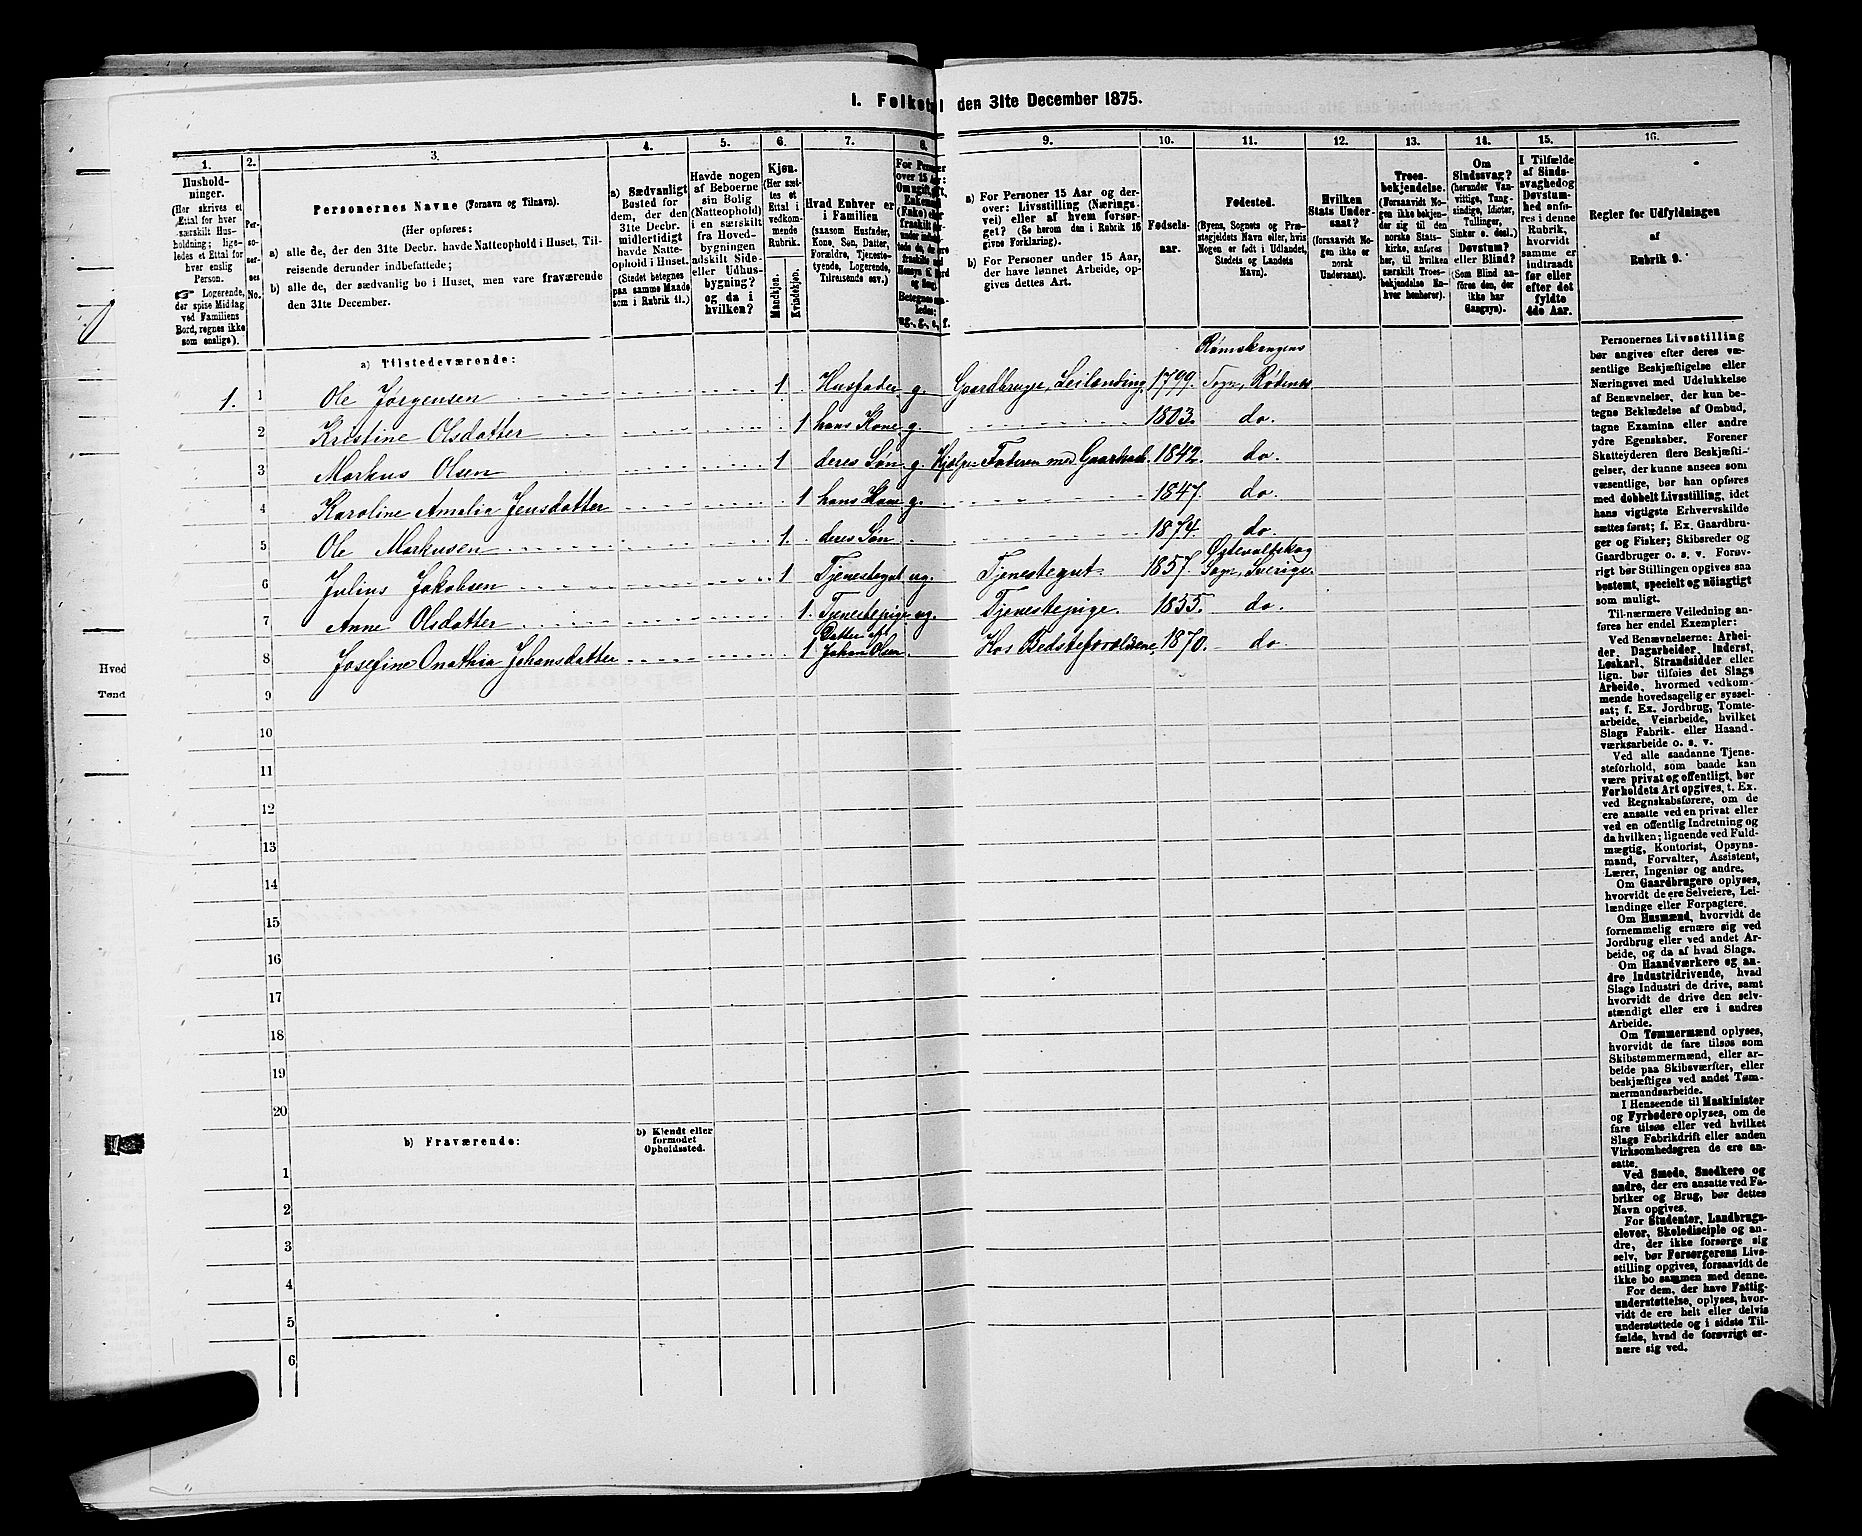 1. Folketal den 31te December 1875.
1.
2.
3.
4.
5.
6.
7.
8.
9.
10.
11.
12.
13.
14.
15.
16.
Hushold-
ninger.
(Her skrives et
Ettal for hver
særskilt Hus-
holdning; lige-
ledes et Ettal for
hver enslig
Person.
☞ Logerende,
der spise Middag
ved Familiens
Bord, regnes ikke
som enslige).
Per-
so-
ner-
nes
No.
Personernes Navne (Fornavn og Tilnavn).
(Her opføres:
a) alle de, der den 31te Decbr. havde Natteophold i Huset, Til-
reisende derunder indbefattede;
b) alle de, der sædvanlig bo i Huset, men vare fraværende
den 31te December.
a) Sædvanligt
Bosted for
dem, der den
31te Decbr.
midlertidigt
havde Natte-
ophold i Huset.
(Stedet betegnes
paa samme Maade
som i Rubrik 11.)
Havde nogen
af Beboerne
sin Bolig
(Natteophold)
i en særskilt
fra Hoved-
bygningen
adskilt Side-
eller Udhus-
bygning?
og da i
hvilken?
Kjøn.
(Her sæt-
tes et
Ettal i
vedkom-
mende
Rubrik.
Mandkjøn.
Kvindekjøn.
Hvad Enhver er
i Familien
(saasom Husfader,
Kone, Søn, Datter,
Forældre, Tjeneste-
tyende, Logerende,
Tilreisende osv.)
a) For Personer 15 Aar og der-
over: Livsstilling (Nærings-
vei) eller af hvem forsør-
get? (Se herom den i Rubrik 16
givne Forklaring).
b) For Personer under 15 Aar,
der have lønnet Arbeide, op-
gives dettes Art.
Fødsels-
aar.
Fødested.
(Byens, Sognets og Præ-
stegjeldets Navn eller, hvis
Nogen er født i Udlandet,
Stedets og Landets
Navn).
Hvilken
Stats Under-
saat?
(forsaavidt No-
gen ikke er
norsk
Undersaat).
Troes-
bekjendelse.
(Forsaavidt No-
gen ikke bekjen-
der sig til den
norske Stats-
kirke, anføres
her, til hvilken
særskilt Troes-
bekjendelse En-
hver henhører).
Om
Sindssvag?
(herunder Van-
vittige, Tung-
sindige, Idioter,
Tullinger,
Sinker o. desl.)
Døvstum?
eller Blind?
(Som Blind an-
føres den, der
ikke har
Gangsyn).
I Tilfælde
af Sinds-
svaghed og
Døvstum-
hed enfø-
res i denne
Rubrik,
hvorvidt
samme er
indtraadt
før eller
efter det
fyldte
4de Aar.
Regler for Udfyldningen
af
Rubrik 9.
a) Tilstedeværende:
Rømskougens
1. 1 Ole Jørgensen 1 Husfader g. Gaardbruger, Leilænding. 1799. Sogn, Rødenes
2 Kristine Olsdatter 1 hans Kone g. 1803. do.
3 Markus Olsen 1 deres Søn g. Hjælper Faderen med Gaardbr. 1842. do.
4 Karoline Amalia Jensdatter 1 hans Kone g. 1847. do.
5 Ole Markusen 1. deres Søn 1874. do.
6 Julius Jakobsen 1 Tjenestegut ug. Tjenestegut. 1857. Østervalskog Sogn, Sverige.
7 Anne Olsdatter 1. Tjenestepige ug. Tjenestepige. 1855. do.
8 Josefine Onathia Johansdatter 1 Datter af Johan Olsen. Hos Bedsteforældrene, 1870. do
9
10
11
12
13
14
15
16
17
18
19
20
b) Fraværende:
b) Kjendt eller
formodet
Opholdssted.
1
2
3
4
5
6
Hved
Tønd
Personernes Livsstilling
bør angives efter deres væ-
sentlige Beskjæftigelse eller
Næringsvei med Udelukkelse
af Benævnelser, der kun be-
tegne Beklædelse af Ombud,
tagne Examina eller andre
ydre Egenskaber. Forener
Skatteyderen flere Beskjæfti-
gelser, der kunne ansees som
væsentlige, bør han opføres
med dobbelt Livsstilling, idet
hans vigtigste Erhvervskilde
sættes først; f. Ex. Gaardbru-
ger og Fisker; Skibsreder og
Gaardbruger o. s. v. Forøv-
rigt bør Stillingen opgives saa
bestemt, specielt og nøiagtigt
som muligt.
Til nærmere Veiledning an-
føres her endel Exempler:
Ved Benævnelserne: Arbei-
der, Dagarbeider, Inderst,
Løskarl, Strandsidder eller
lign. bør tilføies det Slags
Arbeide, hvormed vedkom-
mende hovedsagelig er syssel-
sat; f. Ex. Jordbrug, Tomte-
arbeide, Veiarbeide, hvilket
Slags Fabrik- eller Haand-
værksarbeide o. s. v.
Ved alle saadanne Tjene-
steforhold, som baade kan
være privat og offentligt, bør
Forholdets Art opgives, t. Ex.
ved Regnskabsførere, om de
ere ansatte ved en privat eller
ved en offentlig Indretning og
da hvilken; lignende ved Fuld-
mægtig, Kontorist, Opsyns-
mand, Forvalter, Assistent,
Lærer, Ingeniør og andre.
Om Gaardbrugere oplyses,
hvorvidt de ere Selveiere, Lei-
lændinge eller Forpagtere.
Om Husmænd, hvorvidt de
fornemmelig ernære sig ved
Jordbrug eller ved andet Ar-
beide, og da af hvad Slags.
Om Haandværkere og an-
dre Industridrivende, hvad
Slags Industri de drive, samt
hvorvidt de drive den selv-
stændigt eller ere i andres
Arbeide.
Om Tømmermænd oplyses,
hvorvidt de fare tilsøs som
Skibstømmermænd, eller ar-
beide paa Skibsværfter, eller
beskjæftiges ved andet Tøm-
mermandsarbeide.
I Henseende til Maskinister
og Fyrbødere oplyses, om de
fare tilsøs eller ved hvilket
Slags Fabrikdrift eller anden
Virksomhedsgren de ere an-
satte.
Ved Smede, Snedkere og
andre, der ere ansatte ved Fa-
briker og Brug, bør dettes
Navn opgives.
For Studenter, Landbrugs-
elever, Skoledisciple og an-
dre, der ikke forsørge sig
selv, bør Forsørgerens Livs-
stilling opgives, forsaavidt de
ikke bo sammen med denne.
For dem, der have Fattig-
understøttelse, oplyses, hvor-
vidt de ere helt eller delvis
understøttede og i sidste Til-
fælde, hvad de forøvrigt er-
nære sig ved.